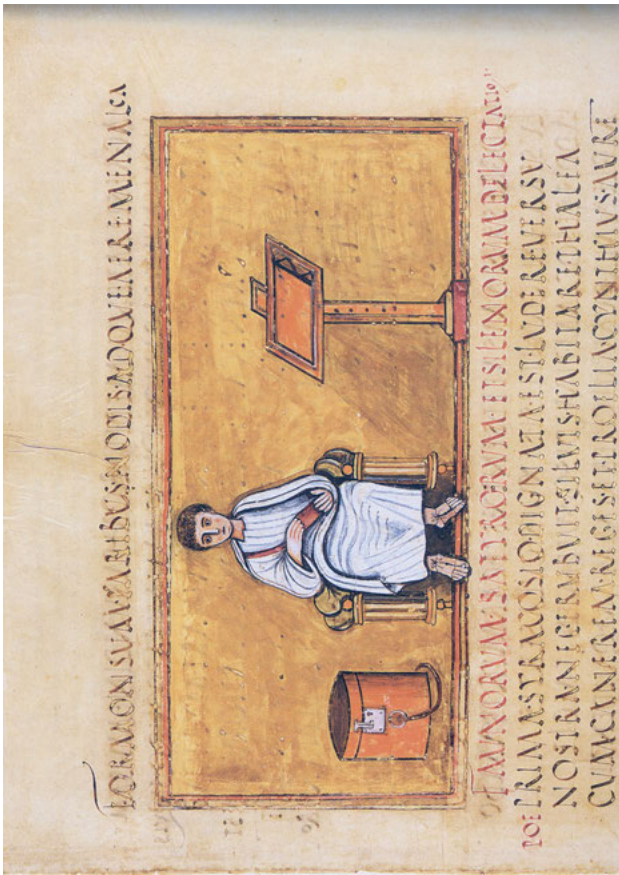 FORMONSVM·PARIBVS·NODIS·ADQVE·AERE·MENALCA
FAVNORVM·SATYRORVM·ET·SILENORVM·DELECTATIO
POE PRIMA·SYRACOSIO·DIGNATA·EST·LVDERE·VERSV
NOSTRA·NEC·ERVBVIT·SILVIS·HABITARE·THALEA
CVM·CANEREM·REGES·ET·PROELIA·CYNTHIVS·AVRE